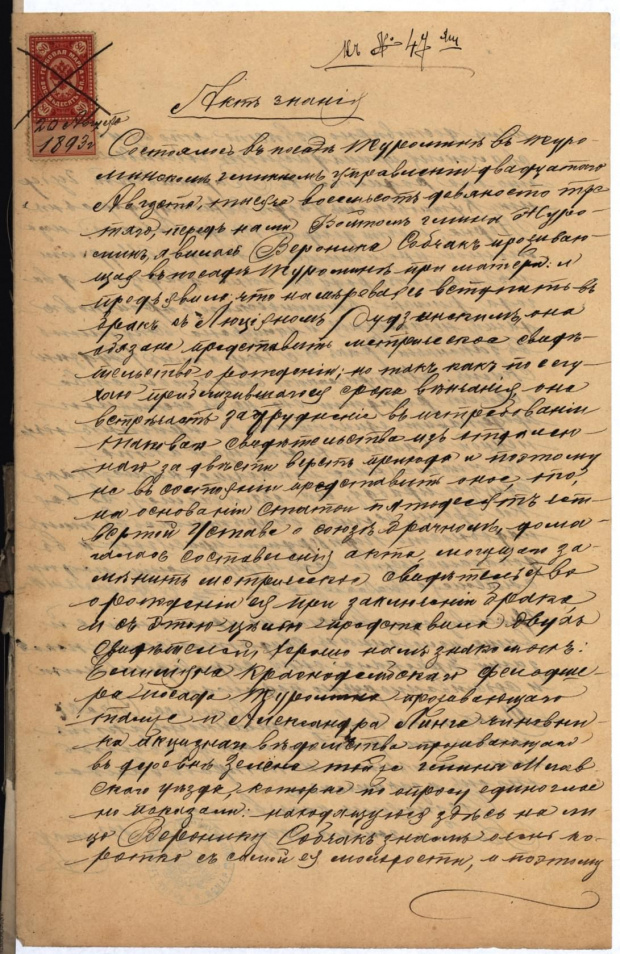 къ № 47 ящ
20 Августа
1893 г
Актъ знанія
Состоялось въ посадѣ Журоминѣ въ Журо-
минскомъ гминномъ управленіи двадцатаго
Августа, тысяча восемьсотъ девяносто трe-
предъ нами Войтомъ гмины Журо-
минъ, явилась Вероника Собчакъ проживаю-
щая въ посадѣ Журоминѣ при матери: и
предъявила, что намѣреваясь вступить въ
бракъ съ Люціяномъ Рудзинскимъ, она
обязана представить метрическое свидѣ-
тельство о рожденіи; но такъ какъ по слу-
чаю приблизившагося срока вѣнчанія она
встрѣчаетъ затрудненіе въ истребованіи
таковаго свидѣтельства изъ отдален-
наго за двѣсти верстъ прихода и поэтому
не въ состояніи представить оное, то,
на основаніи статьи пятьдесятъ чет-
вертой Устава о союзѣ брачномъ, домо-
галась составленія акта, могущаго за-
мѣнить метрическое свидѣтельство
о рожденіи ея при заключеніи брака
и съ этою цѣлью представила двухъ
свидѣтелей, хорошо намъ знакомыхъ:
фельдше-
ра посада Журомина проживающаго
тамже и Александра Ланге чиновни-
ка акцизнаго вѣдомства проживающаго
въ деревнѣ Зелена тойже гмины Млав-
скаго уѣзда, которые по опросу единоглас-
но показали: находящуюся здѣсь на ли-
цо Веронику Собчакъ знаемъ очень ко-
ротко съ самой ея молодости, и поэтому